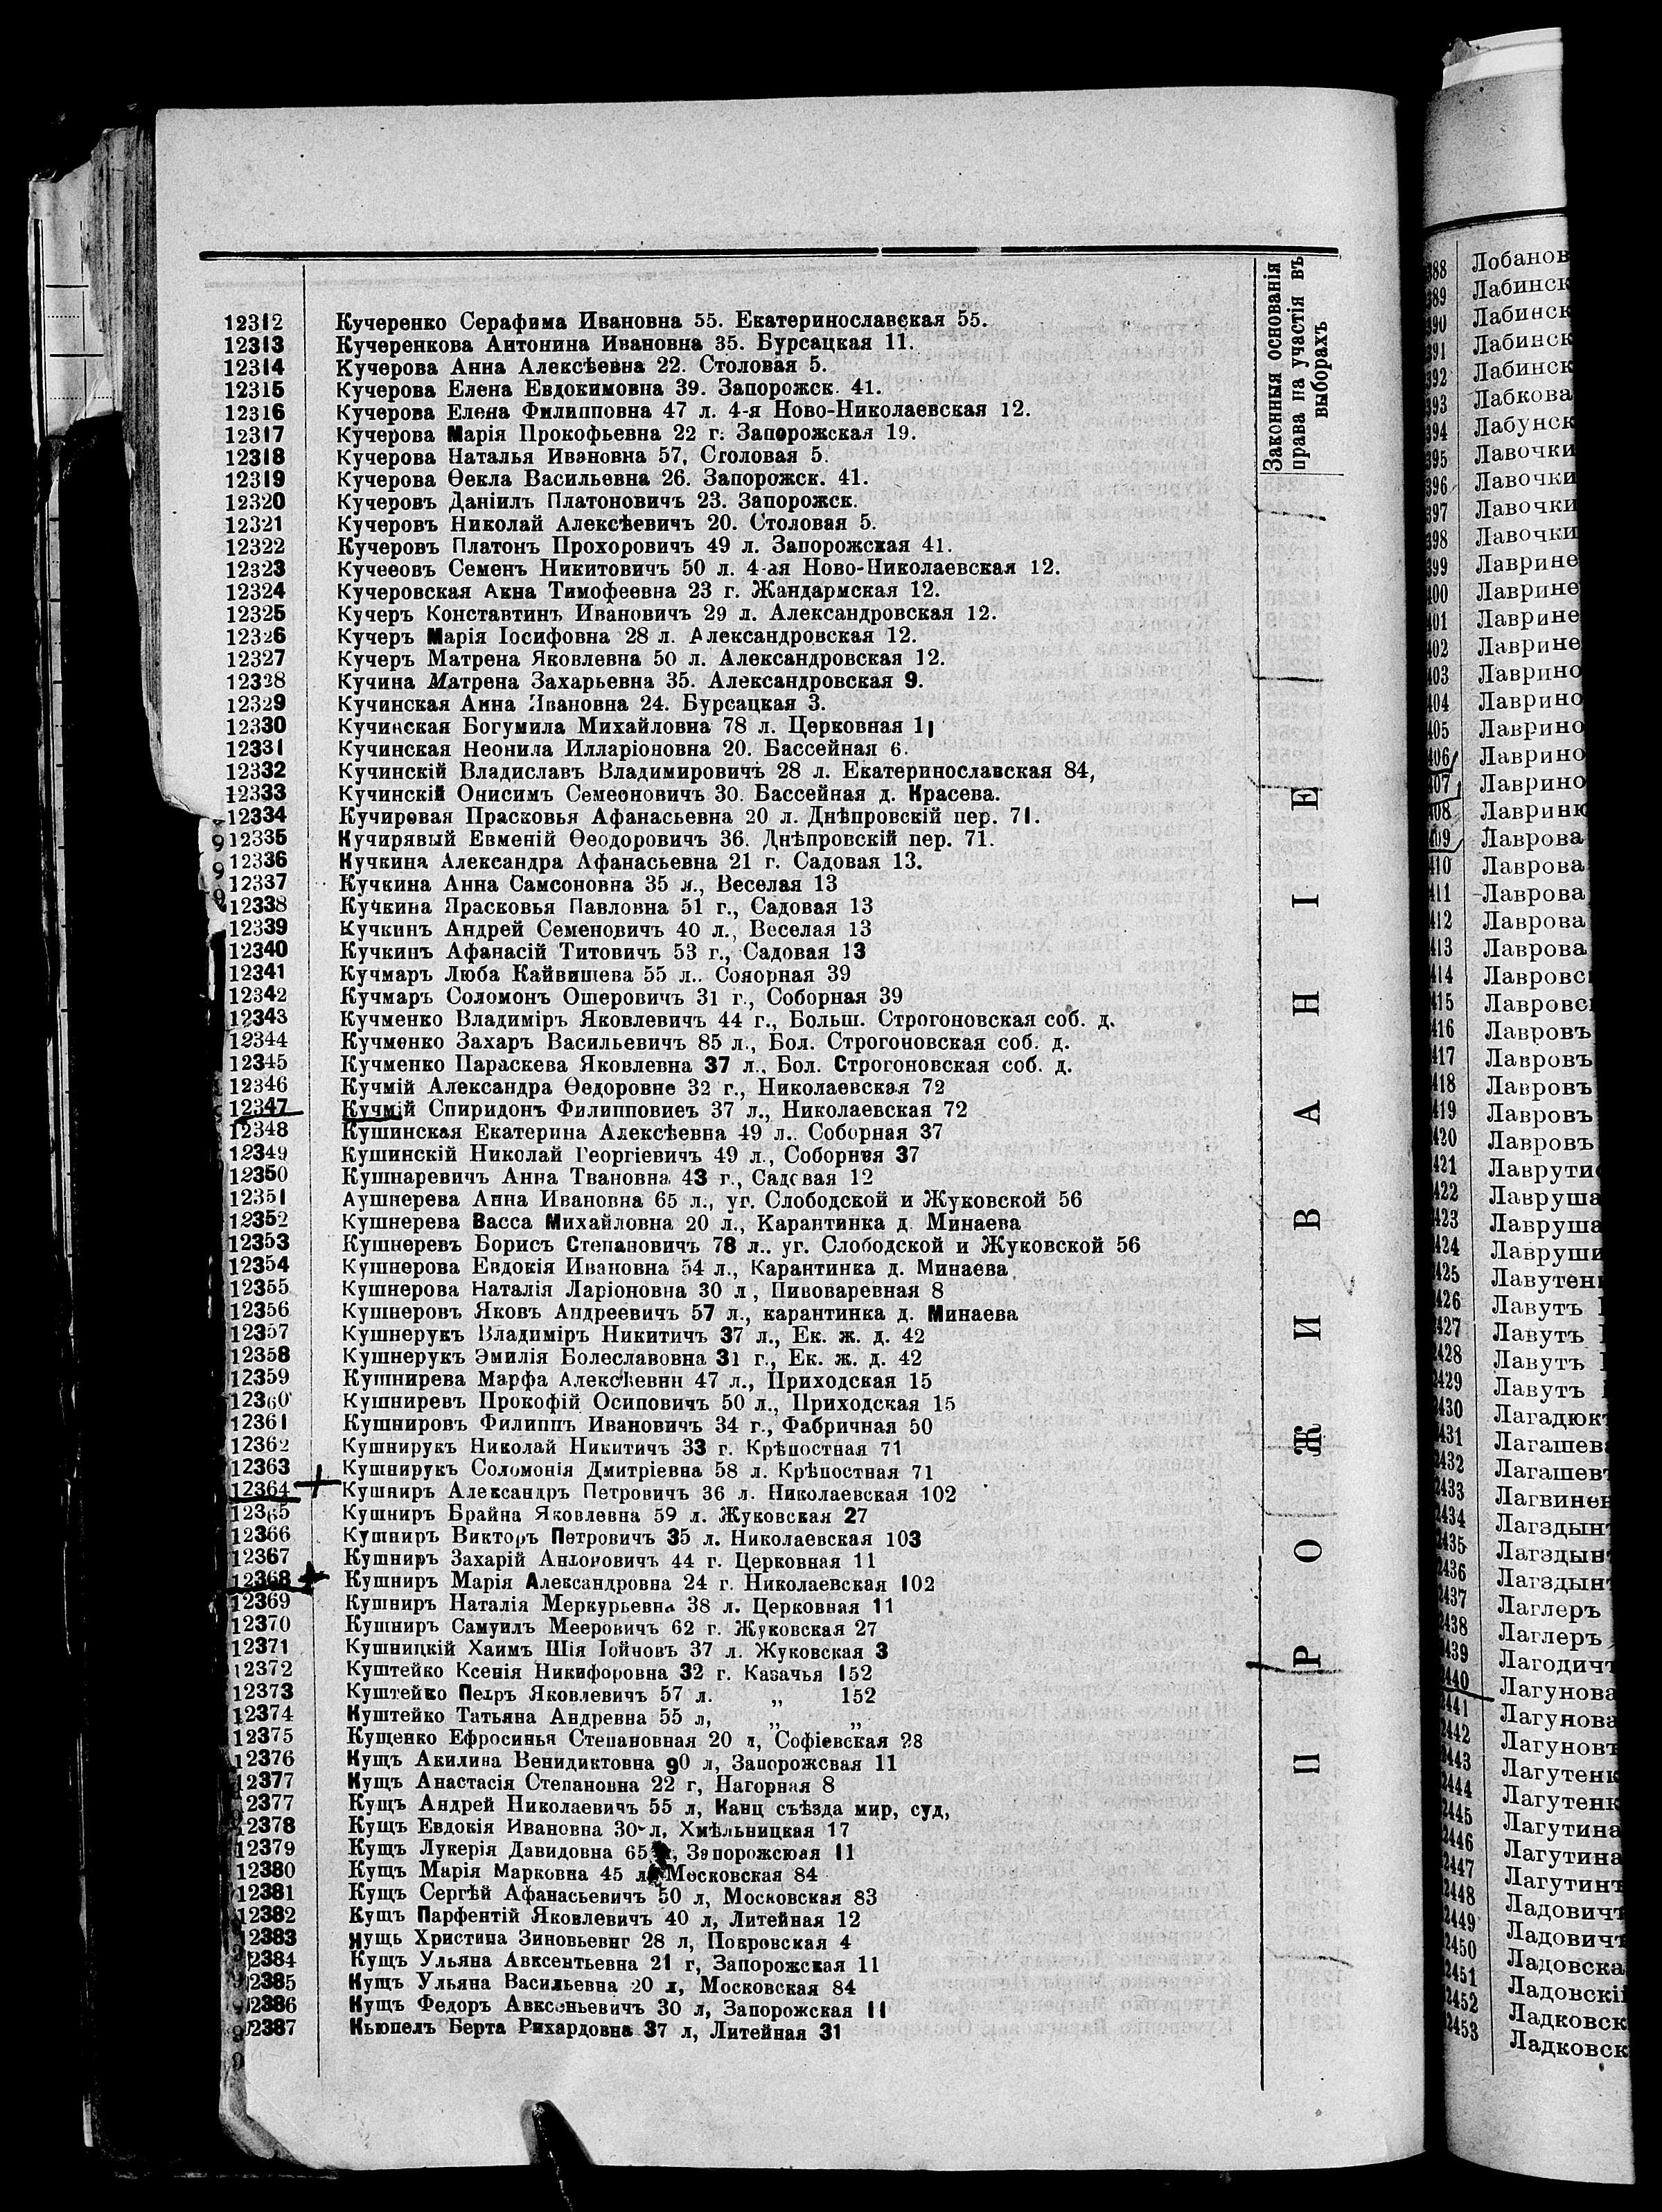 Законныя основанія
права на участія въ
выборахъ
12312 Кучеренко Серафима Ивановна 55. Екатеринославская 55.
12313 Кучеренкова Антонина Ивановна 35. Бурсацкая 11.
12314 Кучерова Анна Алексѣевна 22. Столовая 5.
12315 Кучерова Елена Евдокимовна 39. Запорожск. 41.
12316 Кучерова Елена Филипповна 47 л. 4-я Ново-Николаевская 12.
12317 Кучерова Марія Прокофьевна 22 г. Запорожская 19.
12318 Кучерова Наталья Ивановна 57, Столовая 5.
12319 Кучерова Ѳекла Васильевна 26. Запорожск. 41.
12320 Кучеровъ Даніилъ Платоновичъ 23. Запорожск.
12321 Кучеровъ Николай Алексѣевичъ 20. Столовая 5.
12322 Кучеровъ Платонъ Прохоровичъ 49 л. Запорожская 41.
12323 Кучееовъ Семенъ Никитовичъ 50 л. 4-ая Ново-Николаевская 12.
12324 Кучеровская Акна Тимофеевна 23 г. Жандармская 12.
12325 Кучеръ Константинъ Ивановичъ 29 л. Александровская 12.
12326 Кучеръ Марія Іосифовна 28 л. Александровская 12.
12327 Кучеръ Матрена Яковлевна 50 л. Александровская 12.
12328 Кучина Матрена Захарьевна 35. Александровская 9.
12329 Кучинская Анна Ивановна 24. Бурсацкая 3.
12330 Кучинская Богумила Михайловна 78 л. Церковная 11
12331 Кучинская Неонила Илларіоновна 20. Бассейная 6.
12332 Кучинскій Владиславъ Владимировичъ 28 л. Екатеринославская 84,
12333 Кучинскій Онисимъ Семеоновичъ 30. Бассейная д. Красева.
12334 Кучировая Прасковья Афанасьевна 20 л. Днѣпровскій пер. 71.
12335 Кучирявый Евменій Ѳеодоровичъ 36. Днѣпровскій пер. 71.
12336 Кучкина Александра Афанасьевна 21 г. Садовая 13.
12337 Кучкина Анна Самсоновна 35 л., Веселая 13
12338 Кучкина Ярасковья Павловна 51 г., Садовая 13
12339 Кучкинъ Андрей Семеновичъ 40 л., Веселая 13
12340 Кучкинъ Афанасій Титовичъ 53 г., Садовая 13
12341 Кучмаръ Люба Кайвишева 55 л.. Сояорная 39
12342 Кучмаръ Соломонъ Ошеровичъ 31 г., Соборная 39
12343 Кучменко Владиміръ Яковлевичъ 44 г., Больш. Строгоновская соб. д.
12344 Кучменко Захаръ Васильевичъ 85 л., Бол. Строгоновская соб. д.
12345 Кучменко Параскева Яковлевна 37 л., Бол. Строгоновская соб. д.
12346 Кучмій Александра Ѳедоровне 32 г., Николаевская 72
12347 Кучмій Спиридонъ Филипповиеъ 37 л., Николаевская 72
12348 Кушинская Екатерина Алексѣевна 49 л.. Соборная 37
12349 Кушинскій Николай Георгіевичъ 49 л., Соборнея 37
12350 Кушнаревичъ Анна Твановна 43 г., Садовая 12
12351 Аушнерева Анна Ивановна 65 л., уг. Слободской и Жуковской 56
12352 Кушнерева Васса Михайловна 20 л., Карантинка д. Минаева
12353 Кушнеревъ Борисъ Степановичъ 78 л.. уг. Слободской и Жуковской 56
12354 Кушнерова Евдокія Ивановна 54 л., Карантинка д. Минаева
12355 Кушнерова Наталія Ларіоновна 30 л, Пивоваревная 8
12356 Кушнеровъ Яковъ Андреевичъ 57 л., карантинка д. Минаева
12357 Кушнерукъ Владиміръ Никитичъ 37 л., Ек. ж. д. 42
12358 Кушнерукъ Эмилія Болеславовна 31 г., Ек. ж. д. 42
12359 Кушнирева Марфа Алексѣевни 47 л., Приходская 15
12360 Кушниревъ Прокофій Осиповичъ 50 л., Приходская 15
12361 Кушнировъ Филиппъ Ивановичъ 34 г., Фабричная 50
12362 Кушнирукъ Николай Никитичъ 33 г. Крѣпостная 71
12363 Кушнирукъ Соломонія Дмитріевна 58 л. Крѣпостная 71
12364 Кушниръ Александръ Петровичъ 36 л. Николаевская 102
12365 Кушниръ Брайна Яковлевна 59 л. Жуковская 27
12366 Кушниръ Викторъ Петровичъ 35 л. Николаевская 103
12367 Кушниръ Захарій Антоновичъ 44 г. Церковная 11
12368 Кушниръ Марія Александровна 24 г. Николаевская 102
12369 Кушниръ Наталія Меркурьевна 38 л. Церковная 11
12370 Кушниръ Самуилъ Мееровичъ 62 г. Жуковская 27
12371 Кушницкій Хаимъ Шія Іойновъ 37 л. Жуковская 3
12372 Куштейко Ксенія Никифоровна 32 г. Казачья 152
12373 Куштейко Петръ Яковлевичъ 57 л. „ 152
12374 Куштейко Татьяна Андревна 55 л, „ „
12375 Кущенко Ефросинья Степановная 20 л, Софіевская 28
12376 Кущъ Акилина Венидиктовна 90 л, Запорожсвая 11
12377 Кущъ Анастасія Степановна 22 г, Нагорная 8
12377 Кущъ Андрей Николаевичъ 55 л, Канц съѣзда мир, суд,
12378 Кущъ Евдокія Ивановна 30 л, Хмѣльницкая 17
12379 Кущъ Лукерія Давидовна 65 л, Запорожсюая 11
12380 Кущъ Марія Марковна 45 л, Московская 84
12381 Кущъ Сергѣй Афанасьевичъ 50 л, Московская 83
12382 Кущъ Парфентій Яковлевичъ 40 л, Литейная 12
12383 Нущь Христина Зиновьевиг 28 л, Покровская 4
12384 Кущъ Ульяна Авксентьевна 21 г, Запорожская 11
12385 Кущъ Ульяна Васильевна 20 л, Московская 84
12386 Кущъ Федоръ Авксеньевичъ 30 л, Запорожская 11
12387 Кьюпелъ Берта Рихардовна 37 л, Литейная 31
ПРОЖИВАНІЕ
388 Лобанов
389 Лабинск
390 Лабинск
391 Лабинск
392 Лабинск
393 Лабкова
394 Лабунск
395 Лавочки
396 Лавочки
397 Лавочки
398 Лавочки
399 Лаврине
400 Лаврине
401 Лаврине
402 Лаврине
403 Лаврино
404 Лаврино
405 Лаврино
406 Лаврино
407 Лаврино
408 Лавриню
409 Лаврова
410 Лаврова
411 Лаврова
412 Лаврова
413 Лаврова
414 Лавровс
415 Лавровс
416 Лавровъ
417 Лавровъ
418 Лавровъ
419 Лавровъ
420 Лавровъ
421 Лаврути
422 Лавруша
423 Лавруша
424 Лавруши
425 Лавутен
426 Лавутъ
427 Лавутъ
428 Лавутъ
2429 Лавутъ
2430 Лагадюк
2431 Лагашев
2432 Лагашев
2433 Лагвинен
2434 Лагздын
2435 Лагздын
2436 Лагздын
2437 Лаглеръ
2438 Лаглеръ
2439 Лагодич
2440 Лагунова
2441 Лагунова
2442 Лагунов
2443 Лагутен
2444 Лагутен
2445 Лагутина
2446 Лагутина
2447 Лагутин
2448 Ладович
2449 Ладович
2450 Ладовска
2451 Ладовскі
2452 Ладковск
2453 Ладковск